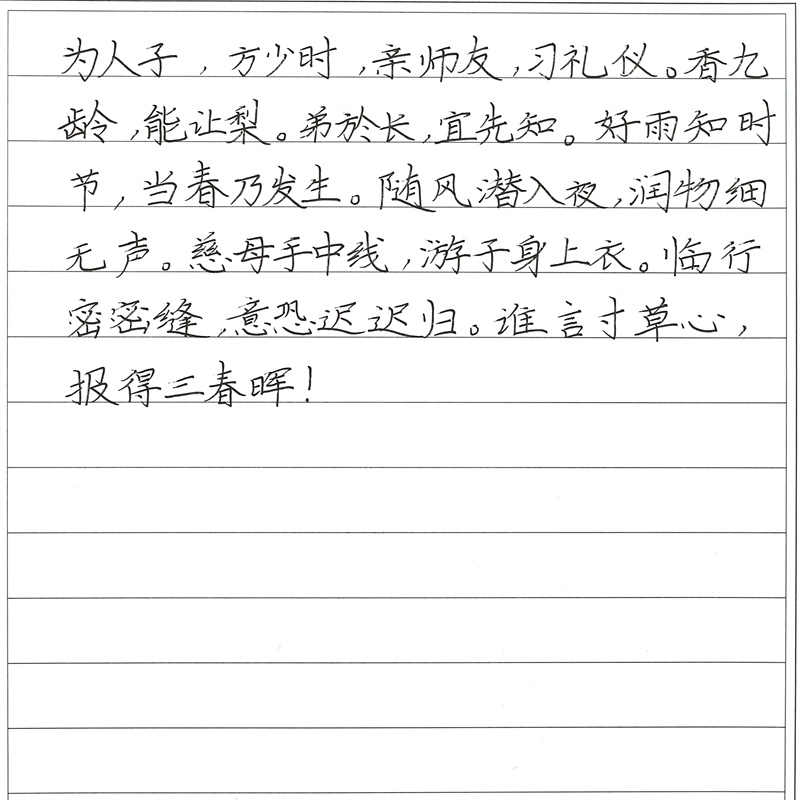 为人子，方少时，亲师友，习礼仪。香九
龄，能让梨。弟於长，宜先知。好雨知时
节，当春乃发生。随风潜入夜，润物细
无声。慈母手中线，游子身上衣。临行
密密缝，意恐迟迟归。谁言寸草心，
报得三春晖！